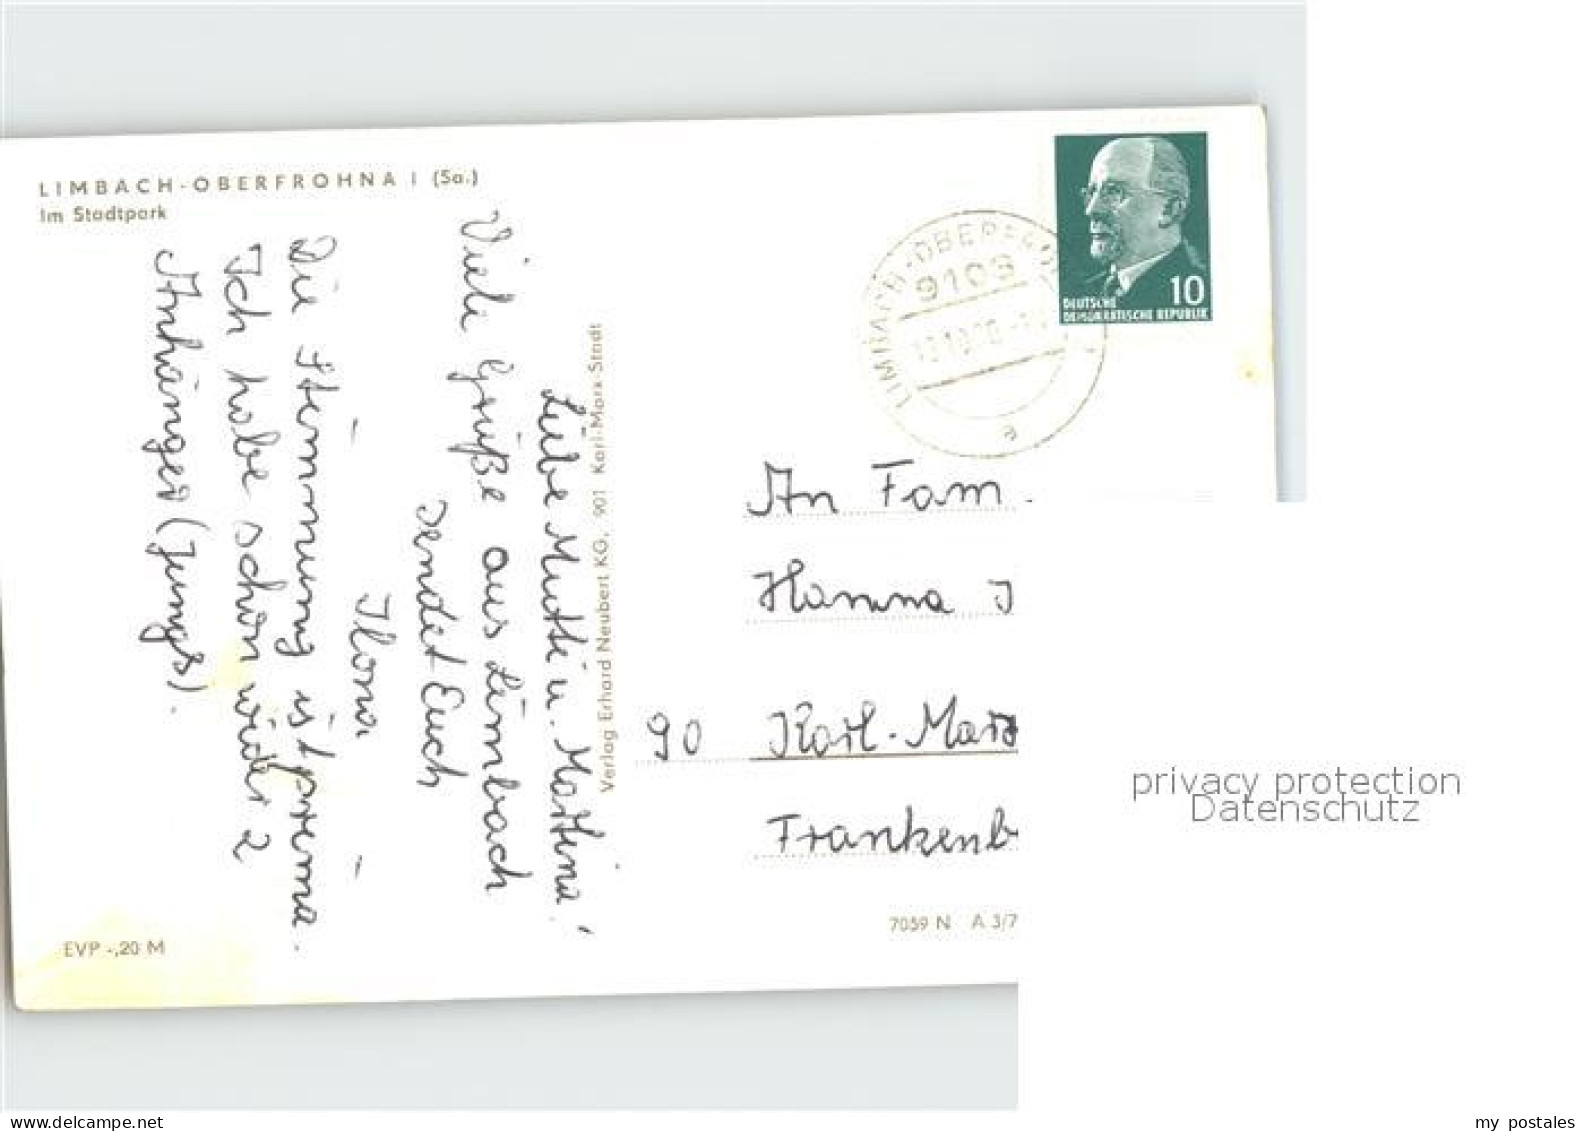 LIMBACH-OBERFROHNA I (Sa.)
Im Stadtpark
Liebe Mutti u. Martina!
Viele Grüße aus Limbach
sendet Euch
- Ilona -
Die Stimmung ist prima.
Ich habe schon wieder 2
Anhänger (Jungs).
Verlag Erhard Neubert KG, 901 Karl-Marx-Stadt
EVP -,20 M
LIMBACH-OBERFROH
9103
a
10
DEUTSCHE
DEMOKRATISCHE REPUBLIK
An Fam.
Hanna
90 Karl-Marx
Frankenb
7059 N A 3/7
privacy protection
Datenschutz
my postales
www.delcampe.net